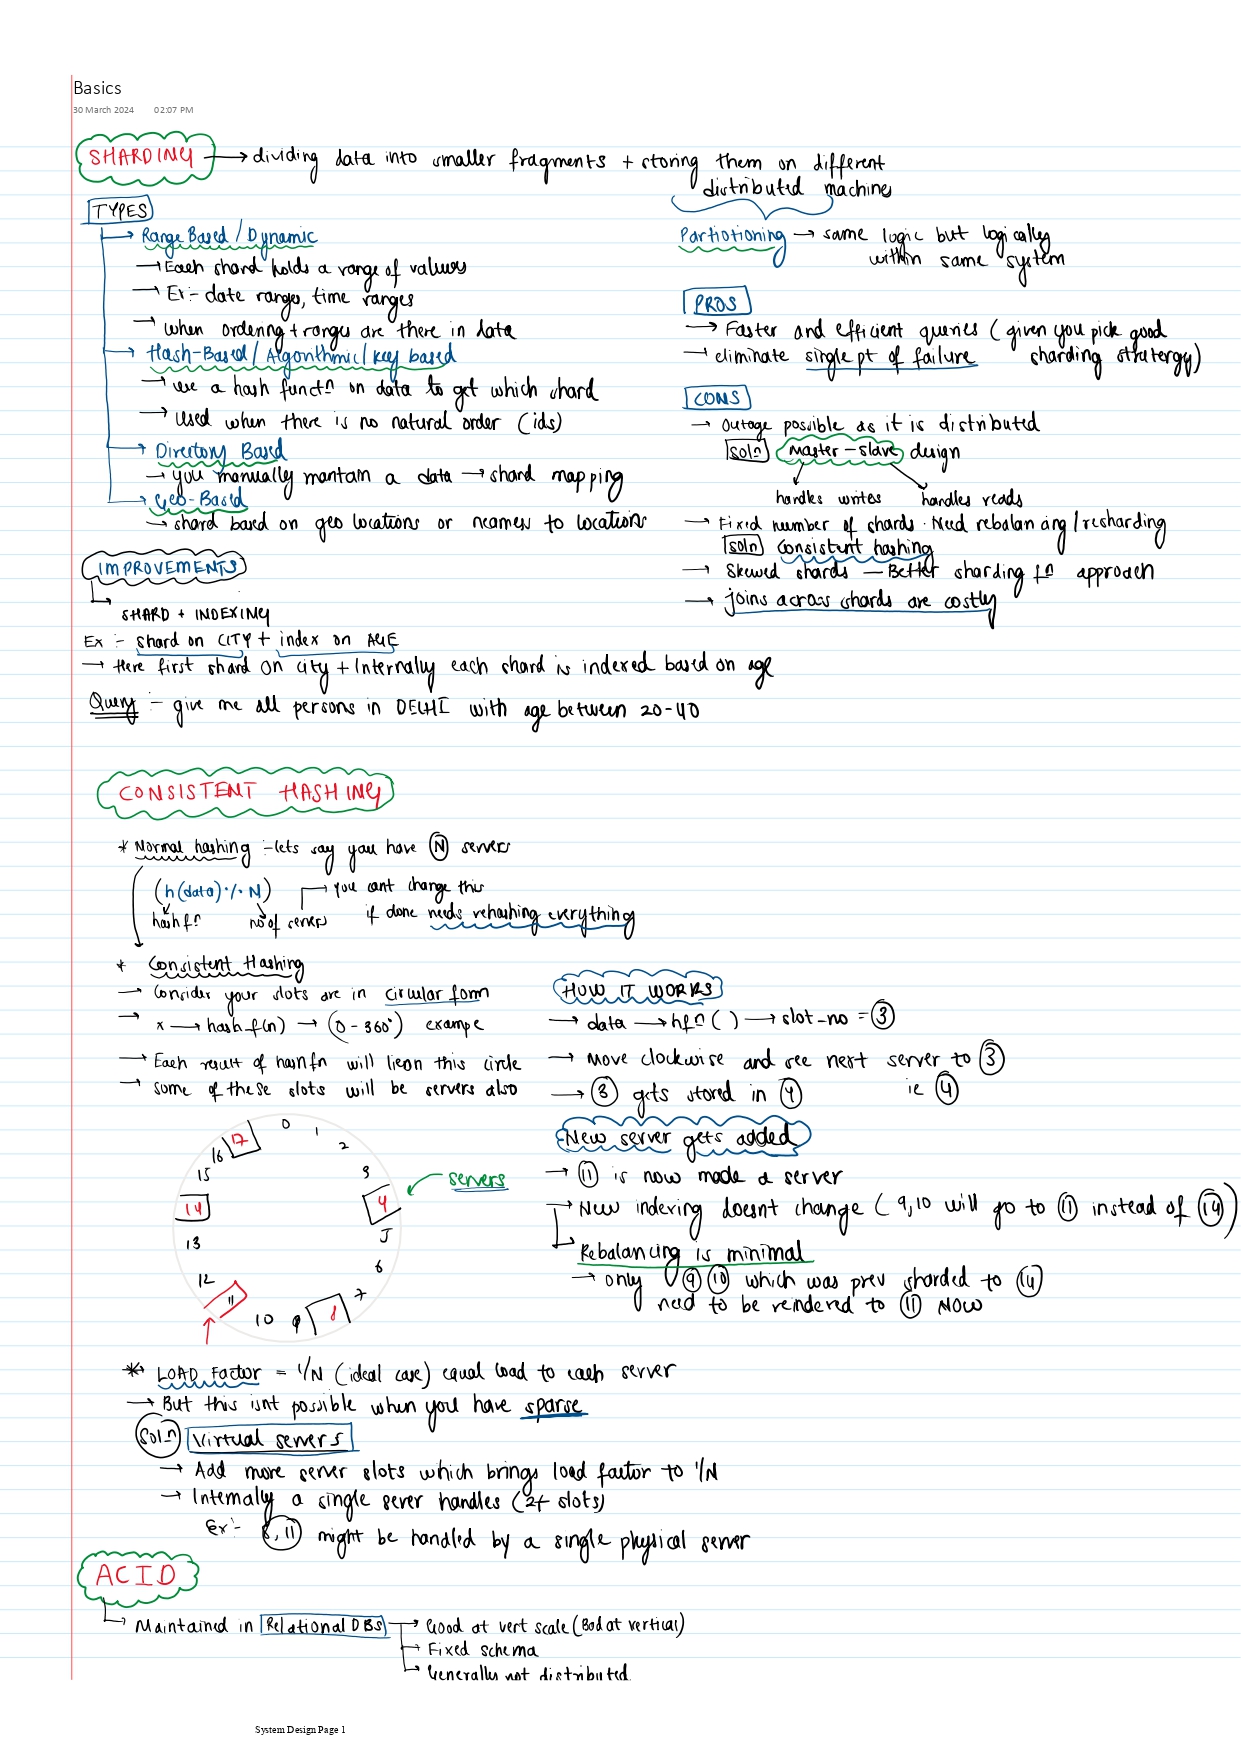 Basics
30 March 2024 02:07 PM
SHARDING → dividing data into smaller fragments + storing them on different
distributed machines
TYPES
→ Range Based / Dynamic
→ Each shard holds a range of values
→ Ex :- date ranges, time ranges
→ when ordering + ranges are there in data
→ Hash-Based / Algorithmic / Key based
→ use a hash functn on data to get which shard
→ Used when there is no natural order (ids)
→ Directory Based
→ you manually mantain a data → shard mapping
→ Geo-Based
→ shard based on geo locations or nearness to locations
Partiotioning → same logic but logically
within same system
PROS
→ Faster and efficient queries (given you pick good
sharding stratergy)
→ eliminate single pt of failure
CONS
→ Outage possible as it is distributed
soln Master-slave design
handles writes handles reads
→ Fixed number of shards. Need rebalancing / resharding
soln consistent hashing
→ Skewed shards — Better sharding fn approach
→ joins across shards are costly
IMPROVEMENTS
SHARD + INDEXING
Ex :- Shard on CITY + index on AGE
→ Here first shard on city + Internally each shard is indexed based on age
Query :- give me all persons in DELHI with age between 20-40
CONSISTENT HASHING
* Normal hashing :- lets say you have N servers
(h(data) % N) → you cant change this
hash fn no of servers if done needs rehashing everything
* Consistent Hashing
→ Consider your slots are in circular form
→ x → hash_f(n) → (0-360°) exampe
→ Each result of hashfn will lie on this circle
→ some of these slots will be servers also
HOW IT WORKS
→ data → hfn( ) → slot_no = 3
→ Move clockwise and see next server to 3
ie 4
→ 3 gets stored in 4
New server gets added
→ 11 is now made a server
→ New indexing doesnt change (9,10 will go to 11 instead of 14)
Rebalancing is minimal
→ only 9 10 which was prev sharded to 14
need to be reindered to 11 NOW
0 1 2 3 4 5 6 7 8 9 10 11 12 13 14 15 16 17
servers
* LOAD Factor = 1/N (ideal case) equal load to each server
→ But this isnt possible when you have sparse
Soln Virtual servers
→ Add more server slots which brings load factor to 1/N
→ Internally a single sever handles (2+ slots)
Ex:- 8, 11 might be handled by a single physical server
ACID
→ Maintained in Relational DBs → Good at vert scale (Bad at vertical)
→ Fixed schema
→ Generally not distributed
System Design Page 1